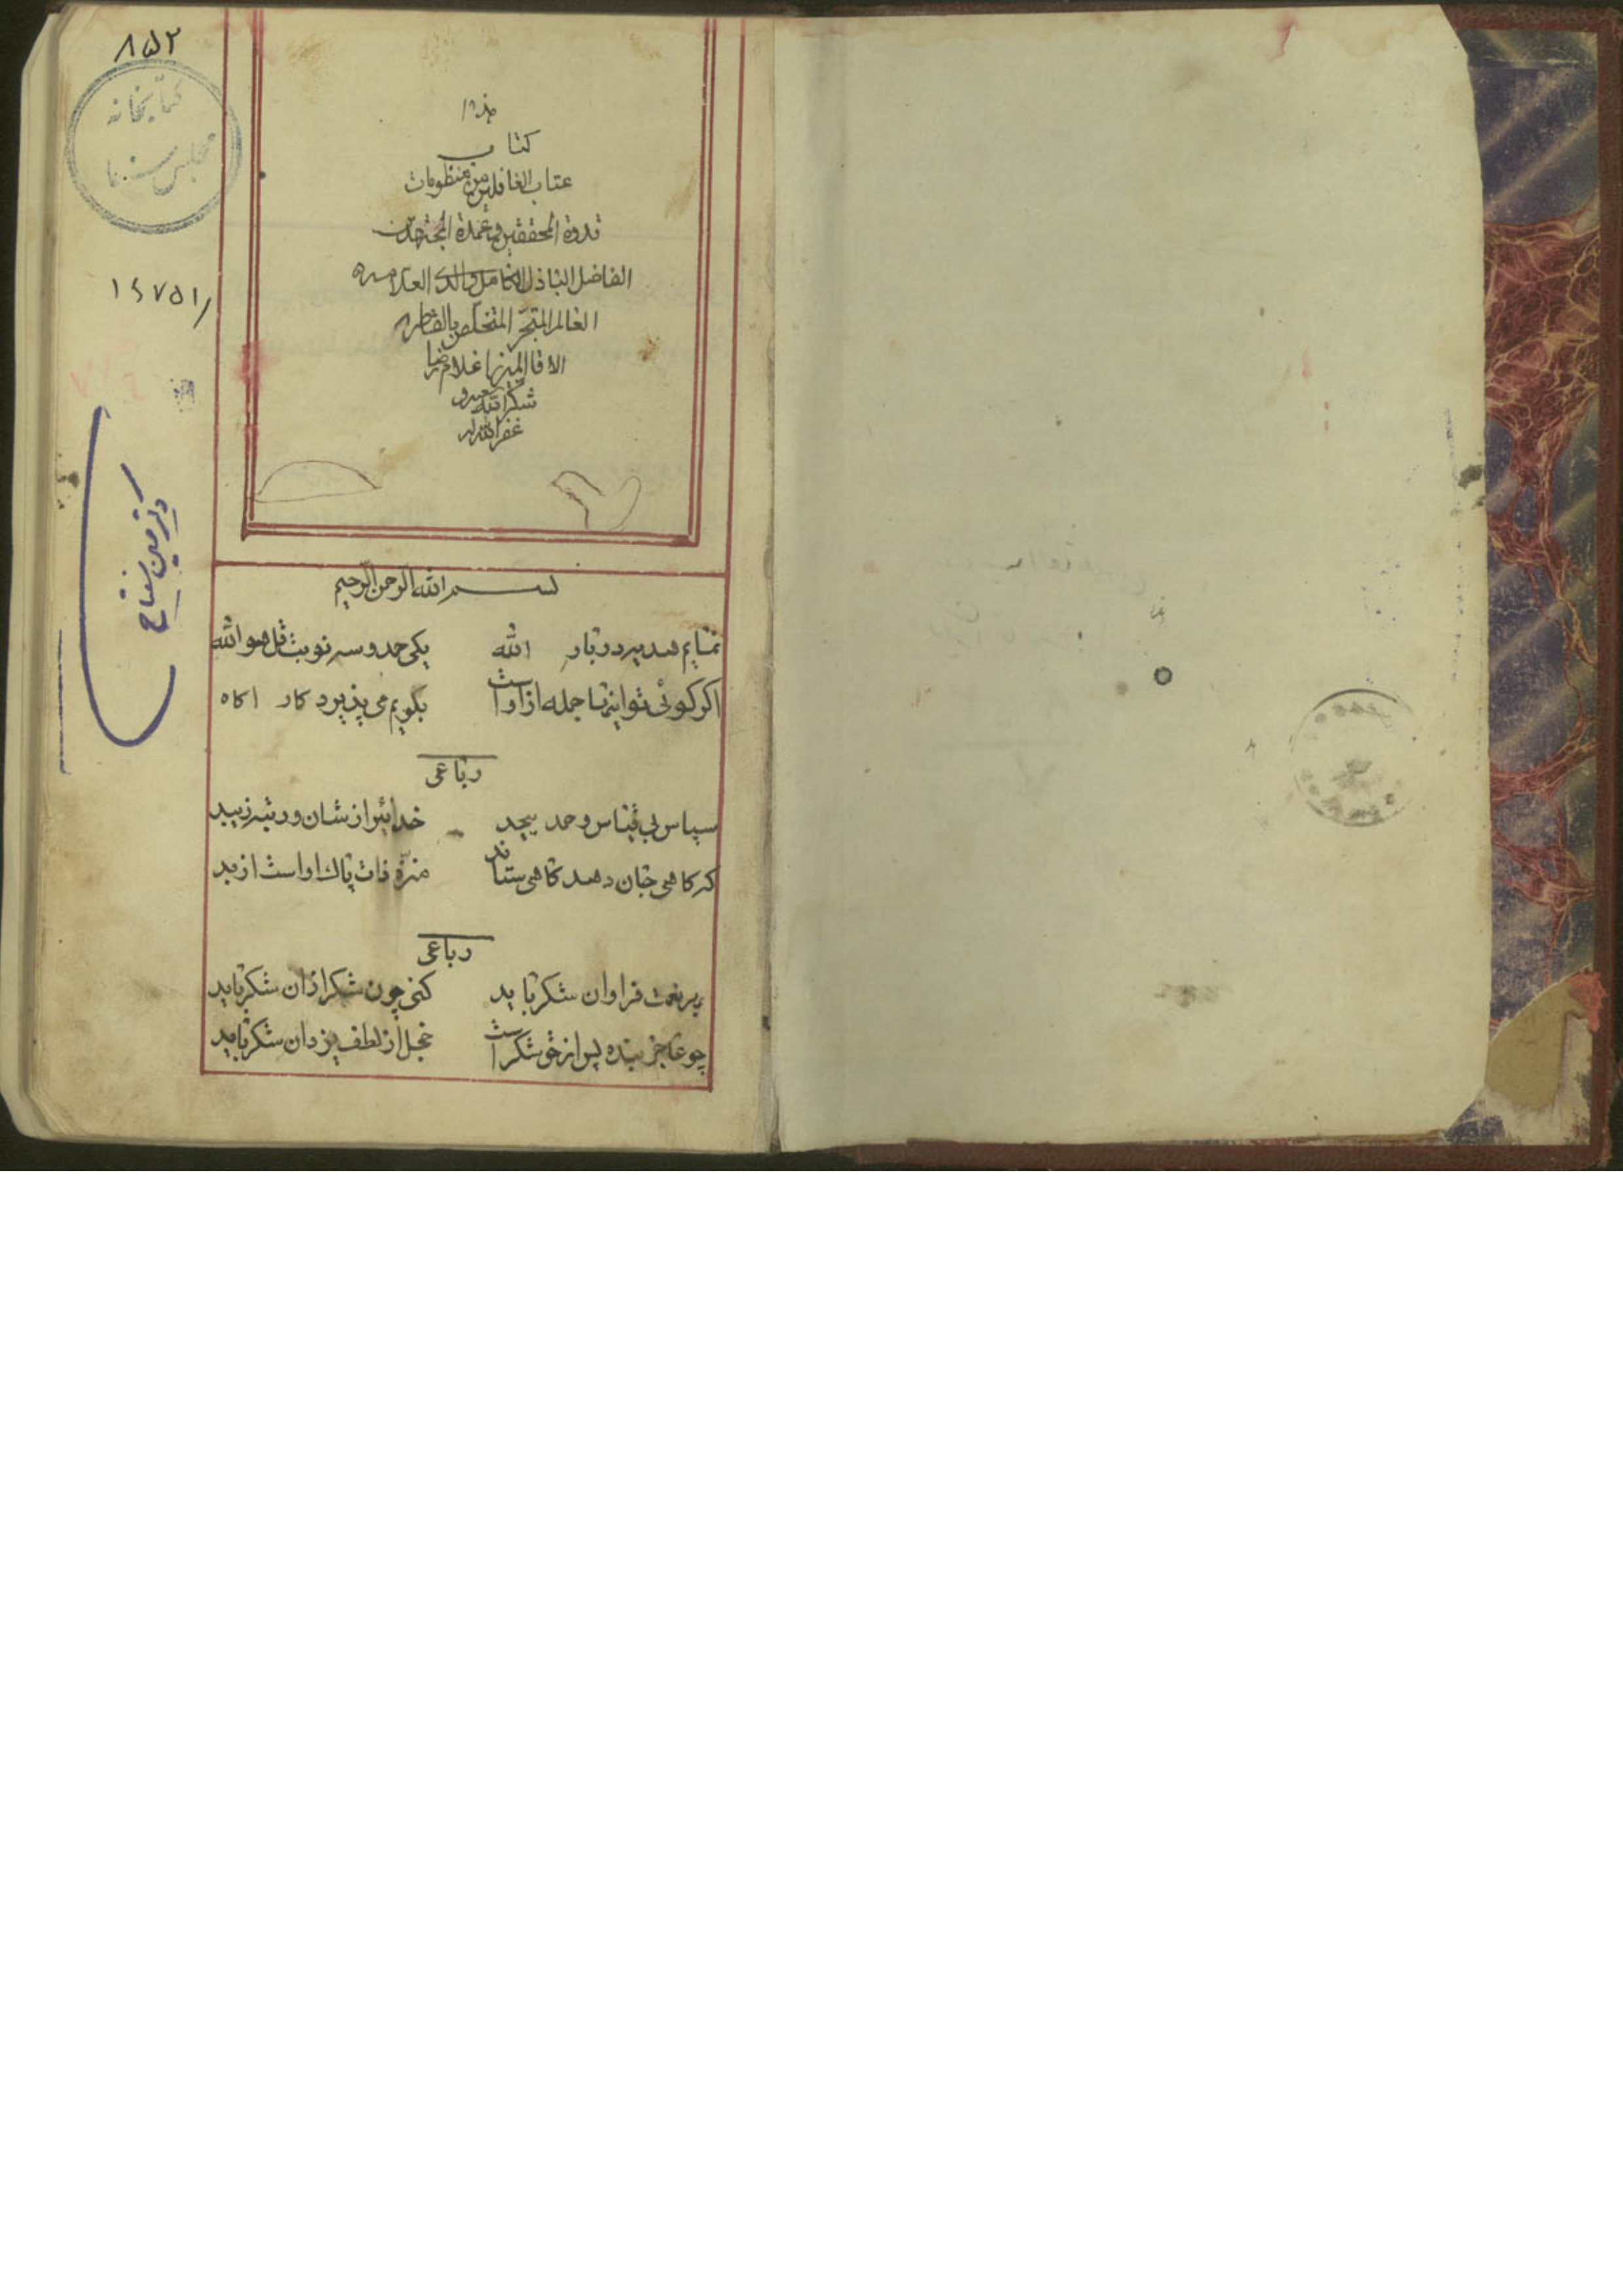 ۸۵۲
کتابخانه
مجلس سنا
۱۶۷۵۱
هذا
کتاب
عتاب الغافلین من منظومات
قدوة المحققین و عمدة المجتهدین
الفاضل الباذل الکامل والد العلامه
العالم المتبحّر المتخلّص
الاقا المیرزا غلامرضا
شکر الله
غفر الله له
بسم الله الرحمن الرحیم
نمایم هدیه دربار الله یکی حمد و سه نوبت قل هو الله
اکر کوئی تو اینها جمله از اوست بکویم می پذیرد کار اکاه
رباعی
سپاس بی قیاس و حمد بیحد خدائیرا ز شان و رتبه زیبد
که کاهی جان دهد کاهی ستاند منزّه ذات پاک او است از بد
رباعی
بهر نعمت فراوان شکر باید کنی چون شکر از ان شکر باید
چو عاجز بنده پس از حق شکر است خجل از لطف یزدان شکر باید